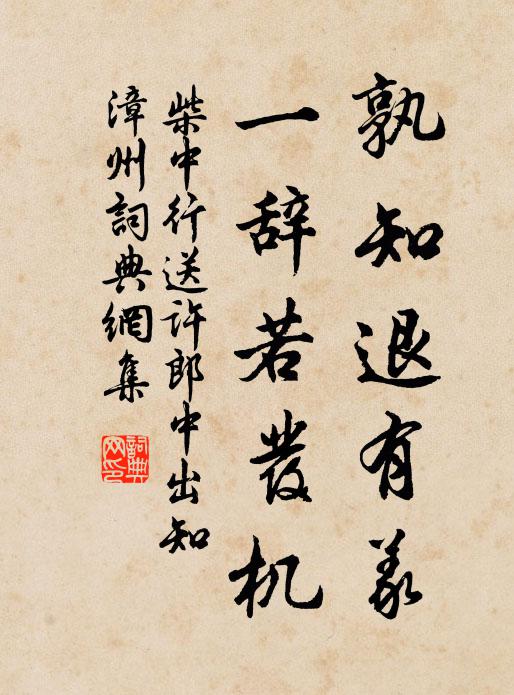 孰知退有义
一辞若发机
柴中行送许郎中出知
漳州詞典網集
詞典网印